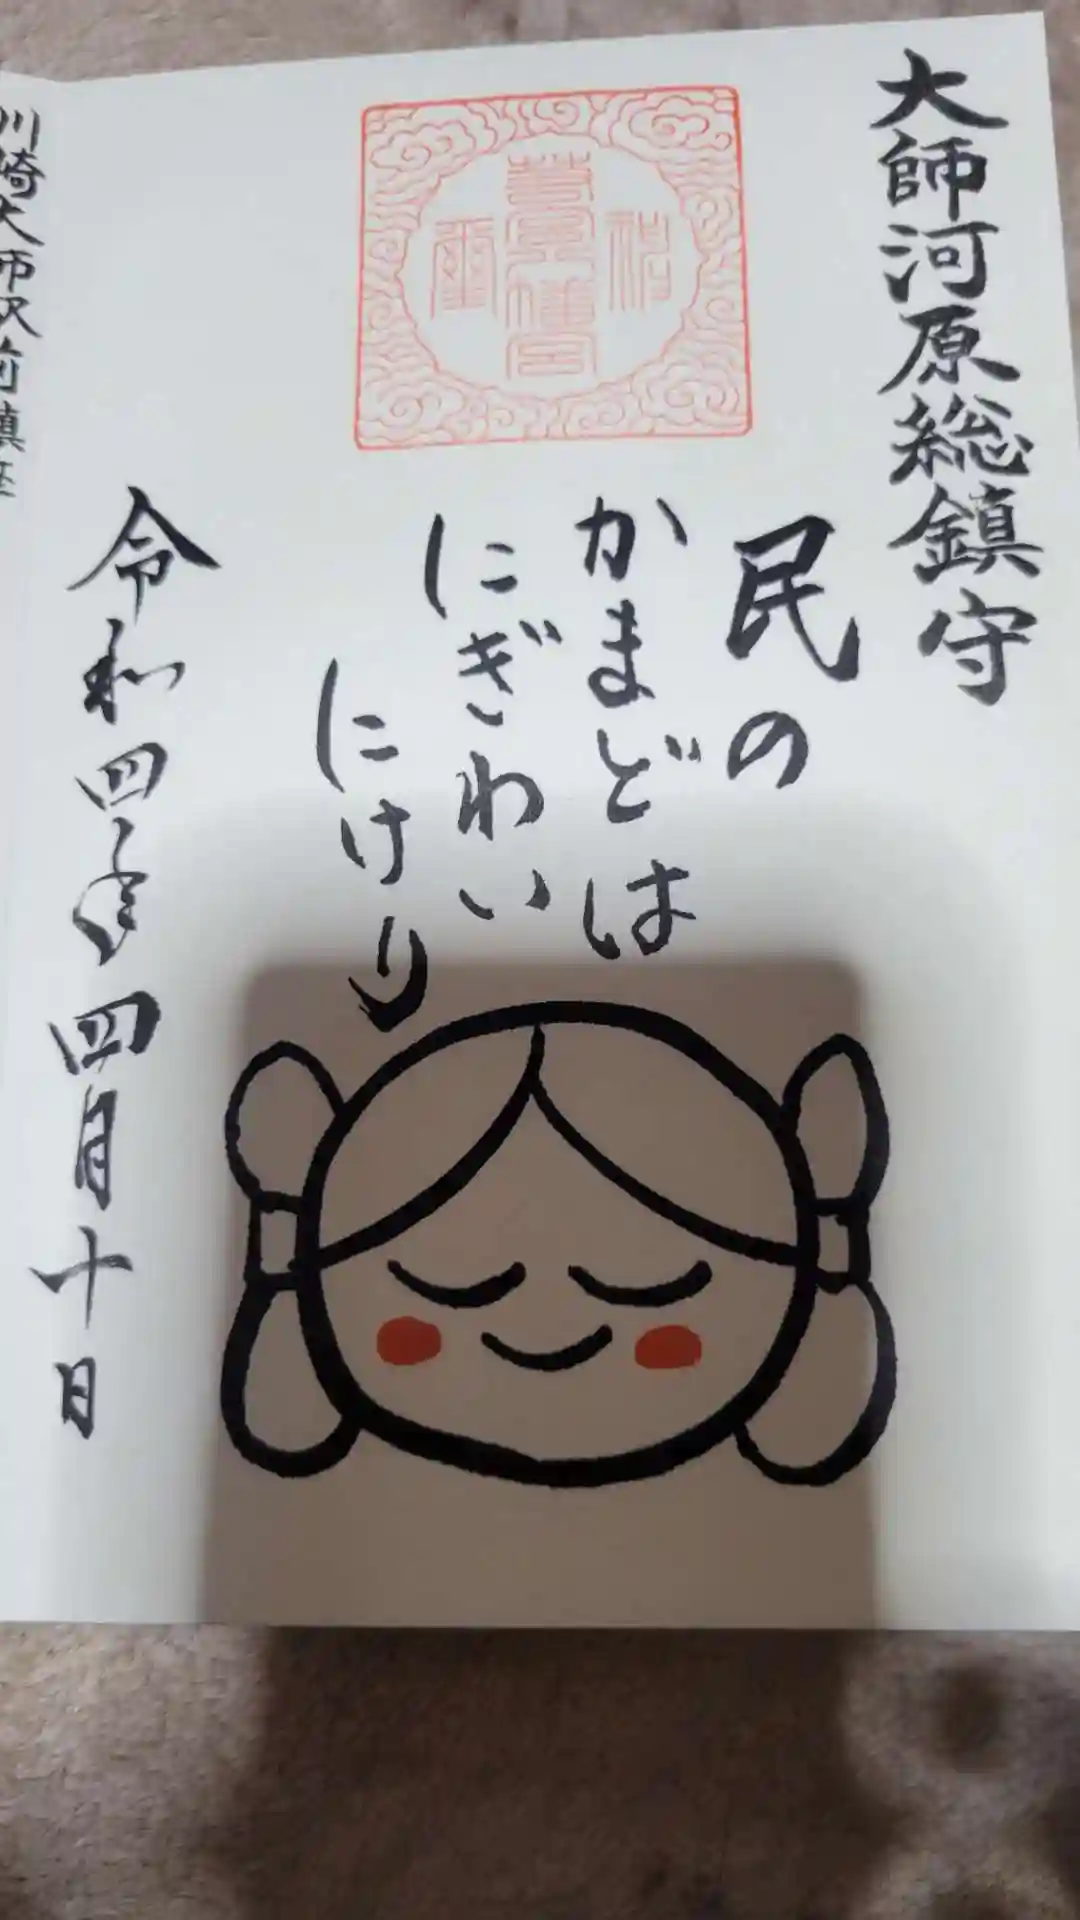 大師河原総鎮守
民の
かまどは
にぎわい
にけり
令和四年四月十日
川崎大師駅前鎮座